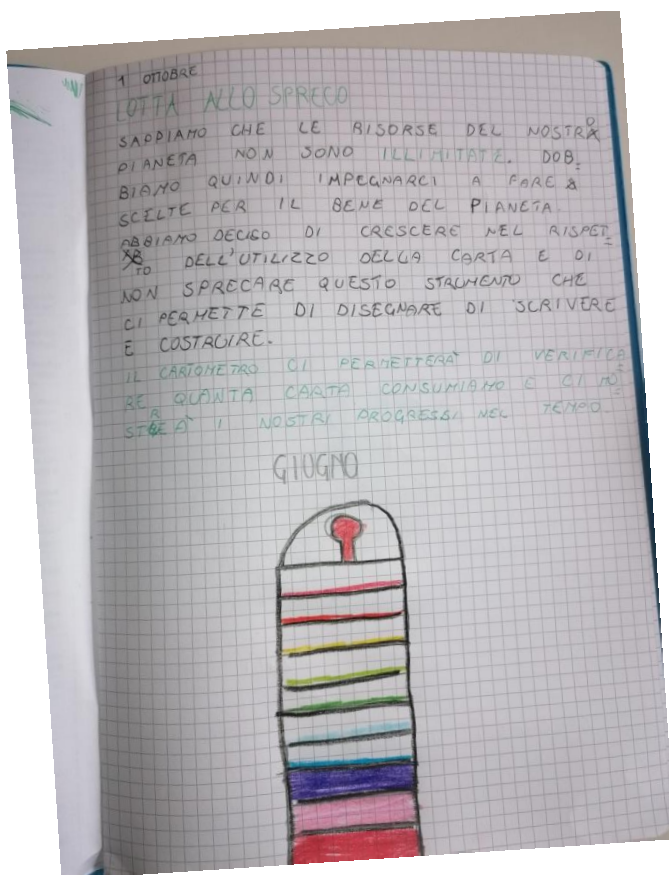 1 OTTOBRE
LOTTA ALLO SPRECO
SAPPIAMO CHE LE RISORSE DEL NOSTRO
PIANETA NON SONO ILLIMITATE. DOB=
BIAMO QUINDI IMPEGNARCI A FARE
SCELTE PER IL BENE DEL PIANETA.
ABBIAMO DECISO DI CRESCERE NEL RISPET=
TO DELL'UTILIZZO DELLA CARTA E DI
NON SPRECARE QUESTO STRUMENTO CHE
CI PERMETTE DI DISEGNARE DI SCRIVERE
E COSTRUIRE.
IL CARTOMETRO CI PERMETTERÀ DI VERIFICA
RE QUANTA CARTA CONSUMIAMO E CI MO=
STRERÀ I NOSTRI PROGRESSI NEL TEMPO.
GIUGNO